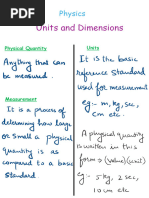 Physics
Units and Dimensions
Physical Quantity
Anything that can
be measured.
Measurement
It is a process of
determining how large
or small a physical
quantity is as
compared to a basic
standard.
Units
It is the basic
reference Standard
used for measurement
eg:- m, kg, sec,
cm etc.
A physical quantity
is written in this
form → (value)(unit)
eg:- 5 kg, 2 sec,
10 cm etc